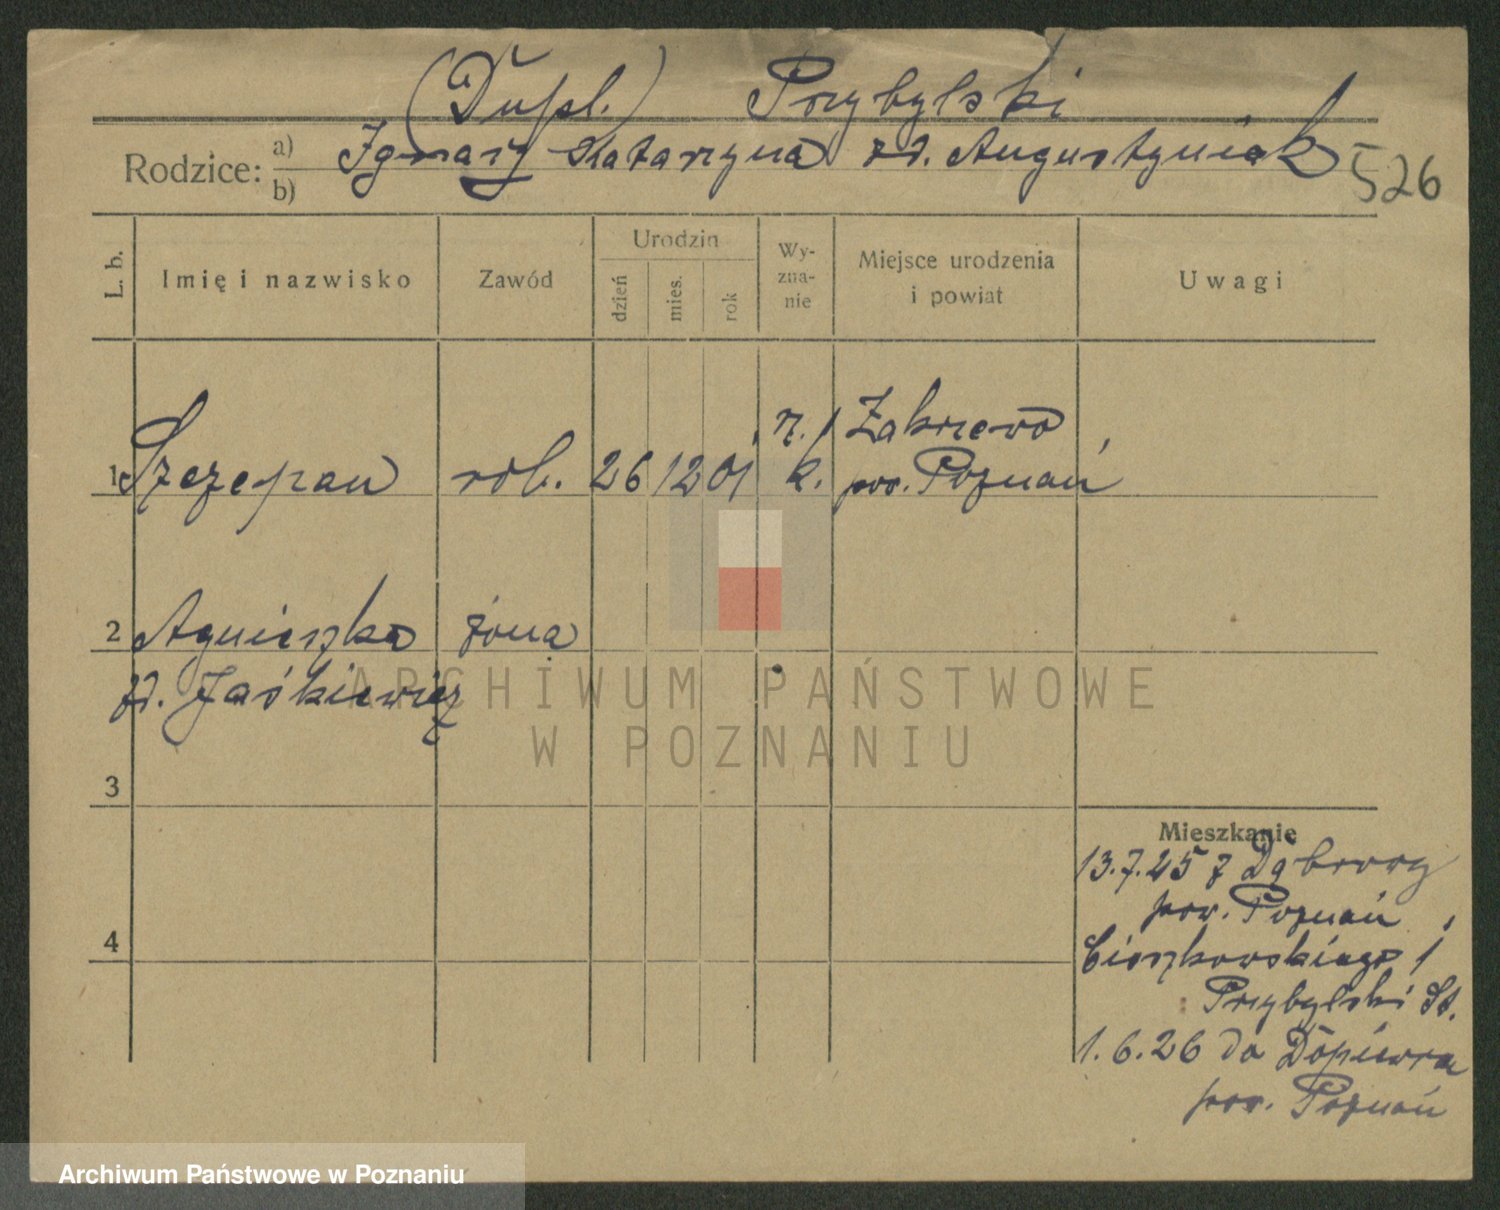 (Dupl.) Przybylski
Rodzice: a) Ignacy Katarzyna zd. Augustyniak 526
b)
L. b. Imię i nazwisko Zawód Urodzin dzień mies. rok Wy-zna-nie Miejsce urodzenia i powiat Uwagi
r. Zakrzewo
1 Szczepan rob. 26 12 01 k. pow. Poznań
2 Agnieszka żona
zd. Jaśkiewicz
3
4
Mieszkanie
13.7.25 z Dąbrowy
pow. Poznań
Cieszkowskiego 1
Przybylski St.
1.6.26 do Dopiewca
pow. Poznań
ARCHIWUM PAŃSTWOWE
W POZNANIU
Archiwum Państwowe w Poznaniu